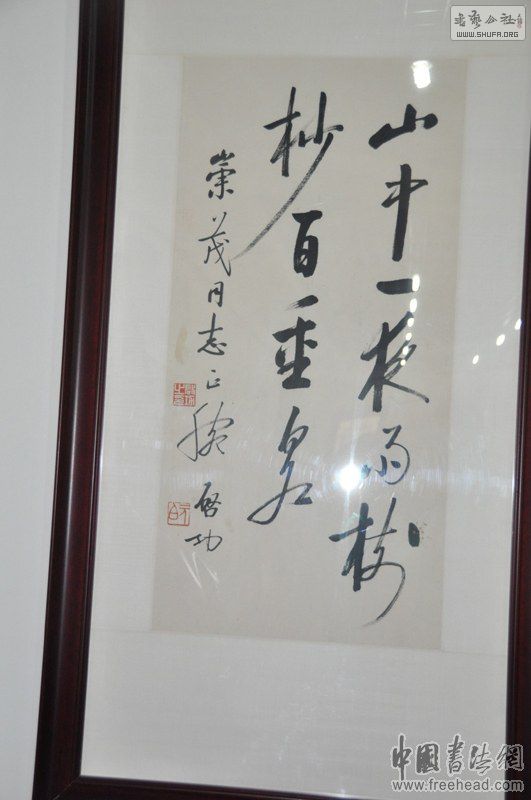 書藝公社
WWW.SHUFA.ORG
山中一夜雨樹
杪百重泉
崇茂同志正腕 启功
中國書法網
www.freehead.com